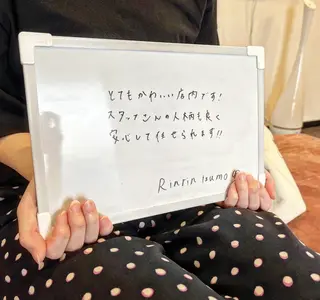 とてもかわいい店内です!
スタッフさんの人柄も良く
安心して任せられます!!
Rinrin Izumo